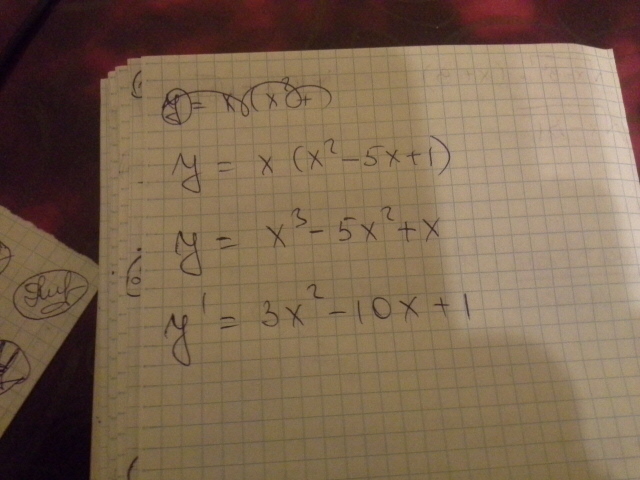 y = x (x² +
y = x (x² - 5x + 1)
y = x³ - 5x² + x
y' = 3x² - 10x + 1